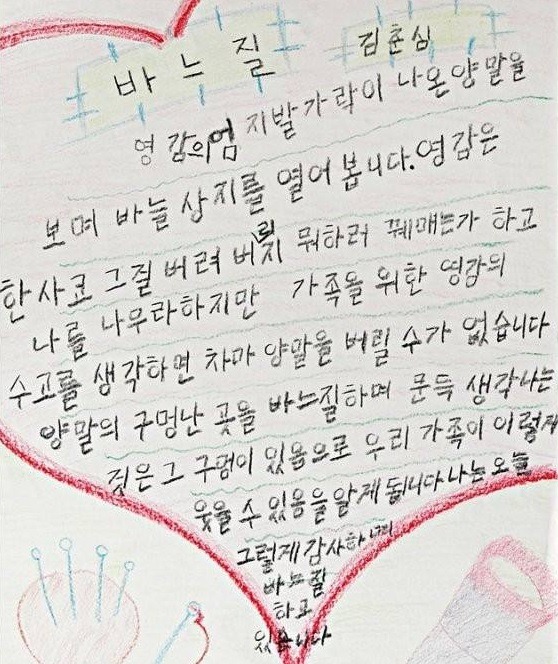 바느질
김춘심
영감의 엄지발가락이 나온양말을
보며 바늘 상지를 열어 봅니다. 영감은
한사코 그질 버려 버리지 뭐하러 꿰매는가 하고
나를 나우라하지만 가족을 위한 영감의
수고를 생각하면 차마 양말을 버릴 수가 없습니다
양말의 구멍난 곳을 바느질하며 문득 생각나는
것은 그 구멍이 있음으로 우리 가족이 이렇게
웃을 수 있음을 알게 됩니다 나는 오늘
그렇게 감사하며
바느질
하고
있습니다